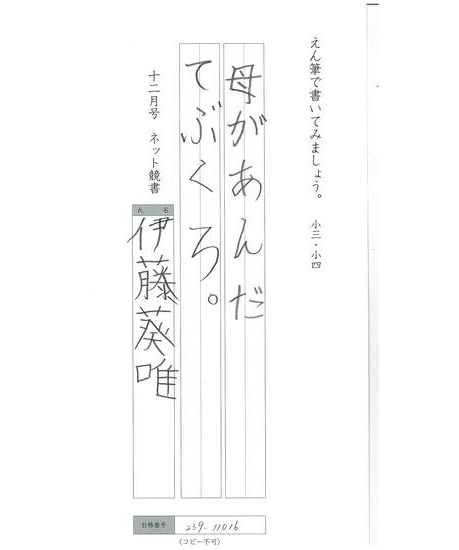 えん筆で書いてみましょう。 小三・小四
母があんだ
てぶくろ。
十二月号 ネット競書
氏名
伊藤葵唯
台帳番号 239-11016
(コピー不可)